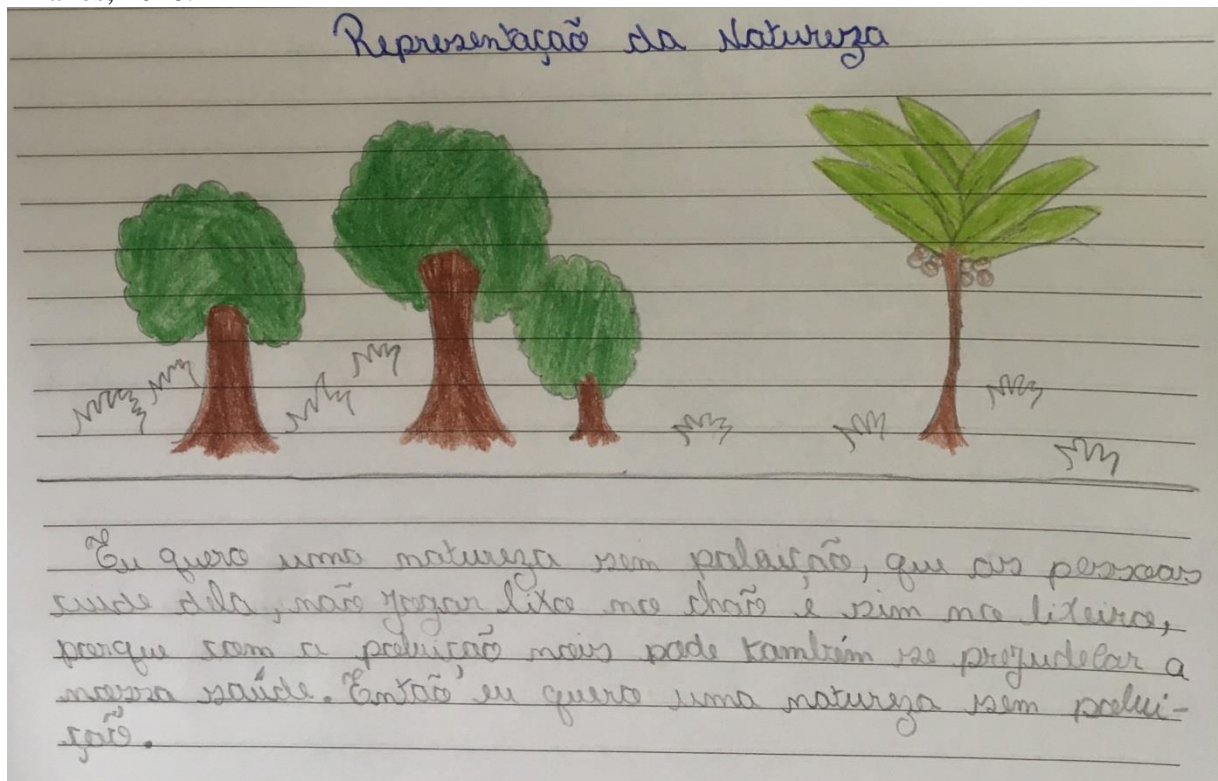 Representação da Natureza
Eu quero uma natureza sem poluição, que as pessoas
cuide dela, não jogar lixo no chão e sim na lixeira,
porque com a poluição nois pode também se prejudicar a
nossa saúde. Então eu quero uma natureza sem polui-
ção.